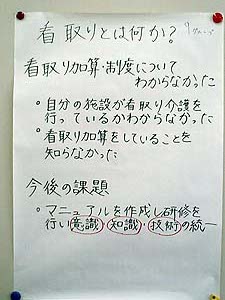 看取りとは何か？
9グループ
看取り加算・制度について
わからなかった
・自分の施設が看取り介護を
行っているかわからなかった
・看取り加算をしていることを
知らなかった
今後の課題
・マニュアルを作成し研修を
行い意識・知識・技術の統一